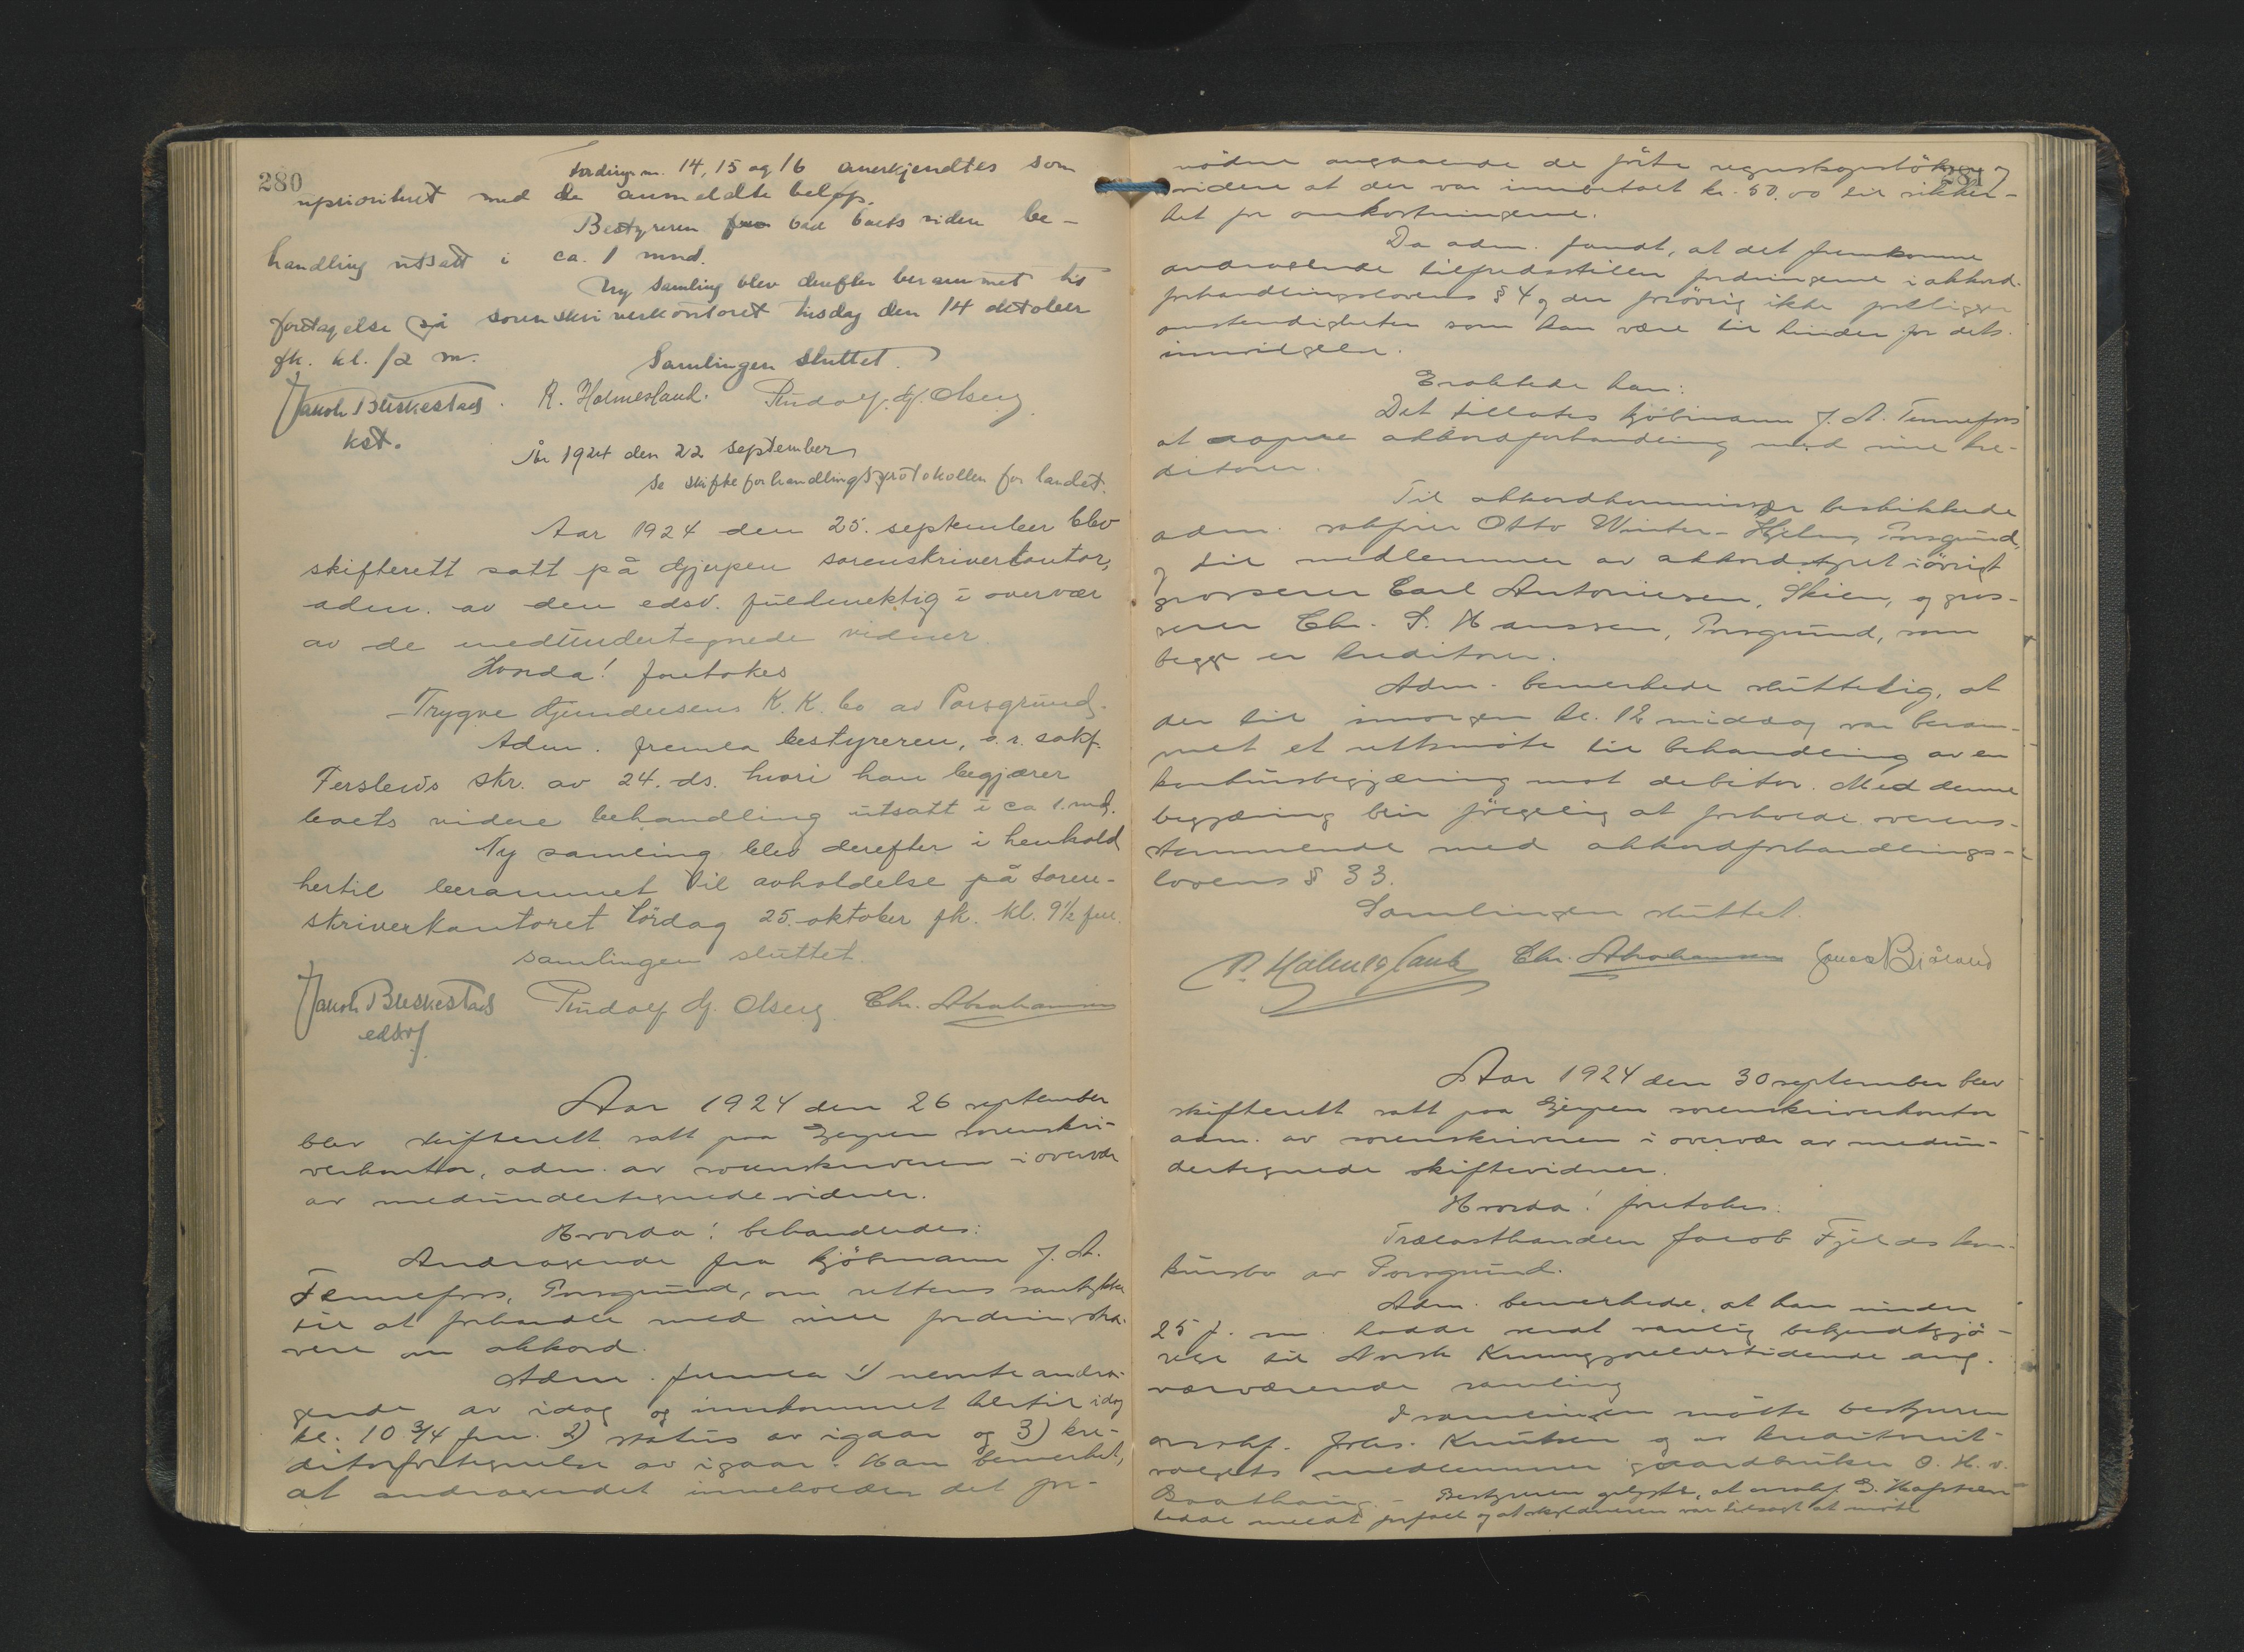 280
Fordringe nr. 14, 15 og 16 anerkjendtes som
uprioritert med de anmeldte beløp.
Bestyreren bad boets videre be-
handling utsatt i ca. 1 mnd.
Ny samling blev derefter berammet til
foretagelse på sorenskriverkontoret tirsdag den 14 oktober
fk. kl. 12 m.
Samlingen sluttet.
Jacob Buskestad. R. Holmesland. Rudolf Gj. Olsen
kst.
År 1924 den 22 september
Se skifteforhandlingsprotokollen for landet.
Aar 1924 den 25. september blev
skifterett satt på Gjerpen sorenskriverkontor,
adm. av den edsv. fuldmektig i overvær
av de medundertegnede vidner.
Hvorda! foretokes
Trygve Gundersens K. K. bo av Porsgrund.
Adm. fremla bestyreren, o.r. sakf.
Ferslews skr. av 24. ds. hvori han begjærer
boets videre behandling utsatt i ca 1. mnd.
Ny samling blev derefter i henhold
hertil berammet til avholdelse på soren-
skriverkontoret lördag 25. oktober fk. kl. 9½ fm.
samlingen sluttet.
Jacob Buskestad Rudolf Gj. Olsen Chr. Abrahamsen
edsv f.
Aar 1924 den 26 september
blev skifterett satt paa Gjerpen sorenskri-
verkontor, adm. av sorenskriveren i overvær
av medundertegnede vidner.
Hvorda! behandledes:
Andragende fra kjöbmann J. A.
Tennefoss, Porsgrund, om rettens samtykke
til at forhandle med sine fordringsha-
vere om akkord.
Adm. fremla 1) nevnte andra-
gende av idag og innkommet hertil idag
kl. 10 3/4 fm. 2) status av igaar og 3) kre-
ditorfortegnelse av igaar. Han bemerket,
at andragendet inneholder det for-
281
nödne angaaende de förte regnskapsböker og
videre at der var innbetalt kr. 50.00 til sikker-
het for omkostningene.
Da adm. fandt, at det fremkomne
andragende tilfredsstiller fordringene i akkord-
forhandlingslovens § 4 og der forövrig ikke foreligger
omstendigheter som kan være til hinder for dets
innvilgelse.
Eraktede han:
Det tillates kjöbmann J. A. Tennefoss
at aapne akkordforhandling med sine kre-
ditorer.
Til akkordkommissær beskikkede
adm. sakförer Otto Winter-Hjelm, Porsgrund,
og til medlemmer av akkordstyret iövrigt
grosserer Carl Antonisen, Skien, og gros-
serer Chr. S. Hanssen, Porsgrund, som
begge er kreditorer.
Adm. bemerkede sluttelig, at
der til imorgen kl. 12 middag var beram-
met et rettsmöte til behandling av en
konkursbegjæring mot debitor. Med denne
begjæring blir fölgelig at forholde overens-
stemmende med akkordforhandlings-
lovens § 33.
Samlingen sluttet.
R. Holmesland Chr. Abrahamsen
Aar 1924 den 30 september blev
skifterett satt paa Gjerpen sorenskriverkontor
adm. av sorenskriveren i overvær av medun-
dertegnede skiftevidner.
Hvorda! foretokes:
Trælasthandler Jacob Fjelds kon-
kursbo av Porsgrund.
Adm. bemerkede, at han under
25 f. m. hadde sendt vanlig bekjendtgjö-
relse til Norsk Kunngjörelsestidende ang.
nærværende samling
I samlingen mötte bestyreren
o.r.sakf. Johs. Knutsen og av kreditorut-
valgets medlemmer gaardbruker O. H. v.
Bestyreren oplyste, at o.r.sakf.
hadde meldt forfall og at skyldneren var tilsagt at möte